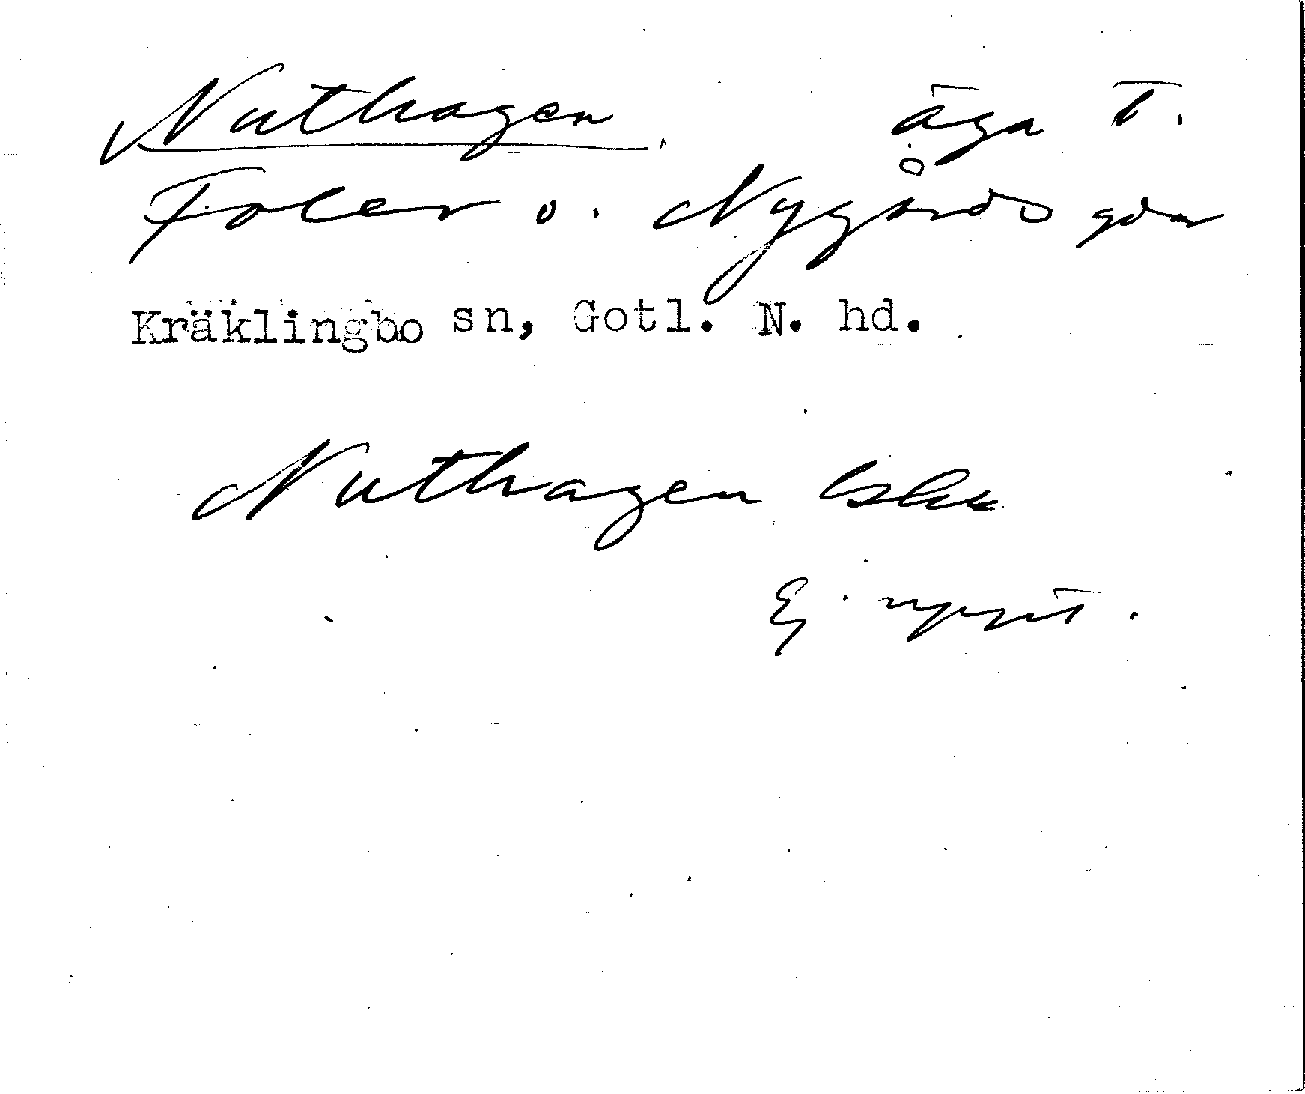 Nuthagen. äga t.
Foler o. Nygårds gdar
Kräklingbo sn, Gotl. N. hd.
Nuthagen lskk
Ej uppt.